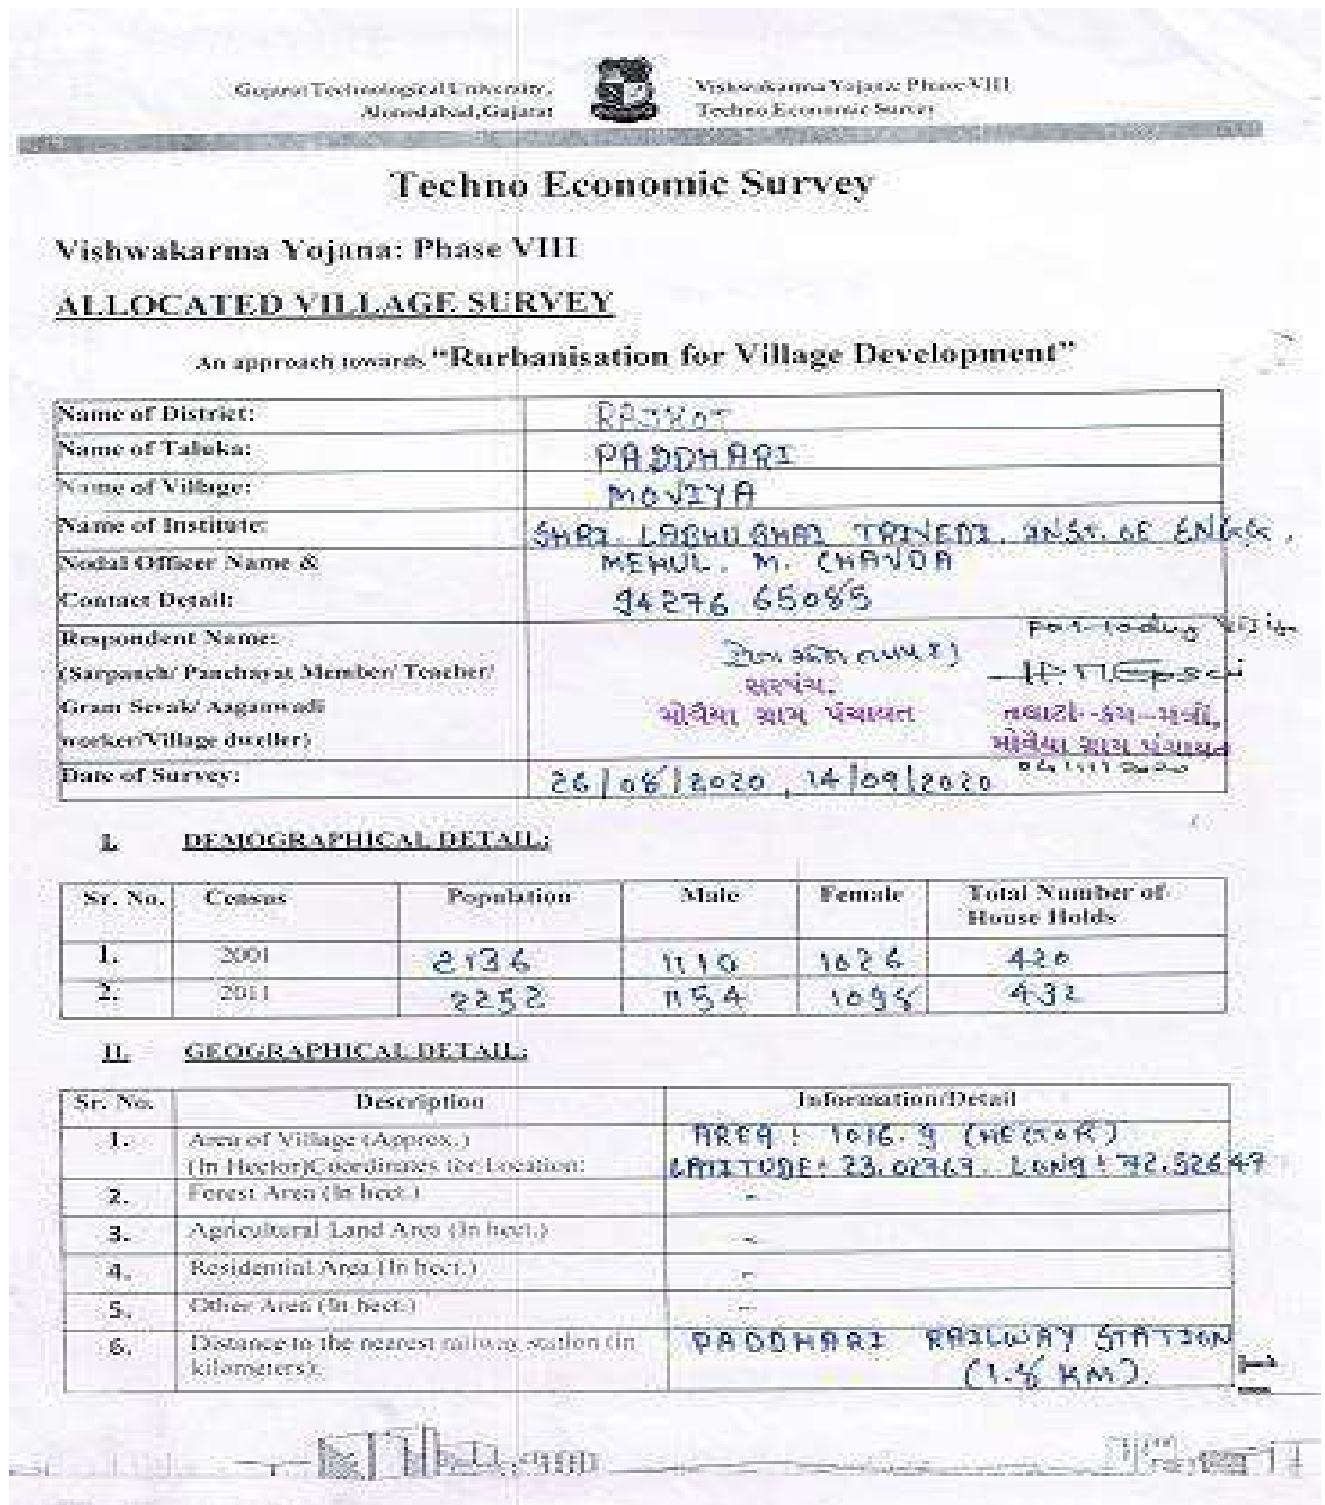 Gujarat Technological University,
Ahmedabad, Gujarat
Vishwakarma Yojana: Phase VIII
Techno Economic Survey
Techno Economic Survey
Vishwakarma Yojana: Phase VIII
ALLOCATED VILLAGE SURVEY
An approach towards "Rurbanisation for Village Development"
Name of District: RAJKOT
Name of Taluka: PADDHARI
Name of Village: MOVIYA
Name of Institute: SHRI. LABHUBHAI TRIVEDI. INST. OF ENGG.
Nodal Officer Name & MEHUL. M. CHAVDA
Contact Detail: 94276 65085
Respondent Name:
(Sarpanch/ Panchayat Member/ Teacher/ સરપંચ.
Gram Sevak/ Aaganwadi મોવૈયા ગ્રામ પંચાયત તલાટી-કમ-મંત્રી,
worker/Village dweller) મોવૈયા ગ્રામ પંચાયત
Date of Survey: 26/08/2020, 14/09/2020
I. DEMOGRAPHICAL DETAIL:
Sr. No. Census Population Male Female Total Number of
House Holds
1. 2001 2136 1110 1026 420
2. 2011 2252 1154 1098 432
II. GEOGRAPHICAL DETAIL:
Sr. No. Description Information/Detail
1. Area of Village (Approx.) AREA : 1016.9 (HECTOR)
(In Hector)Coordinates for Location: LATITUDE: 23.02769. LONG: 72.52647
2. Forest Area (In hect.) -
3. Agricultural Land Area (In hect.) -
4. Residential Area (In hect.) -
5. Other Area (In hect.) -
6. Distance to the nearest railway station (in PADDHARI RAILWAY STATION
kilometers): (1.8 KM).